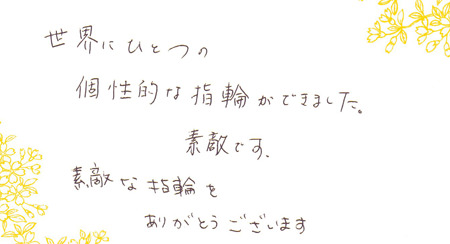 世界にひとつの
個性的な指輪ができました。
素敵です、
素敵な指輪を
ありがとうございます